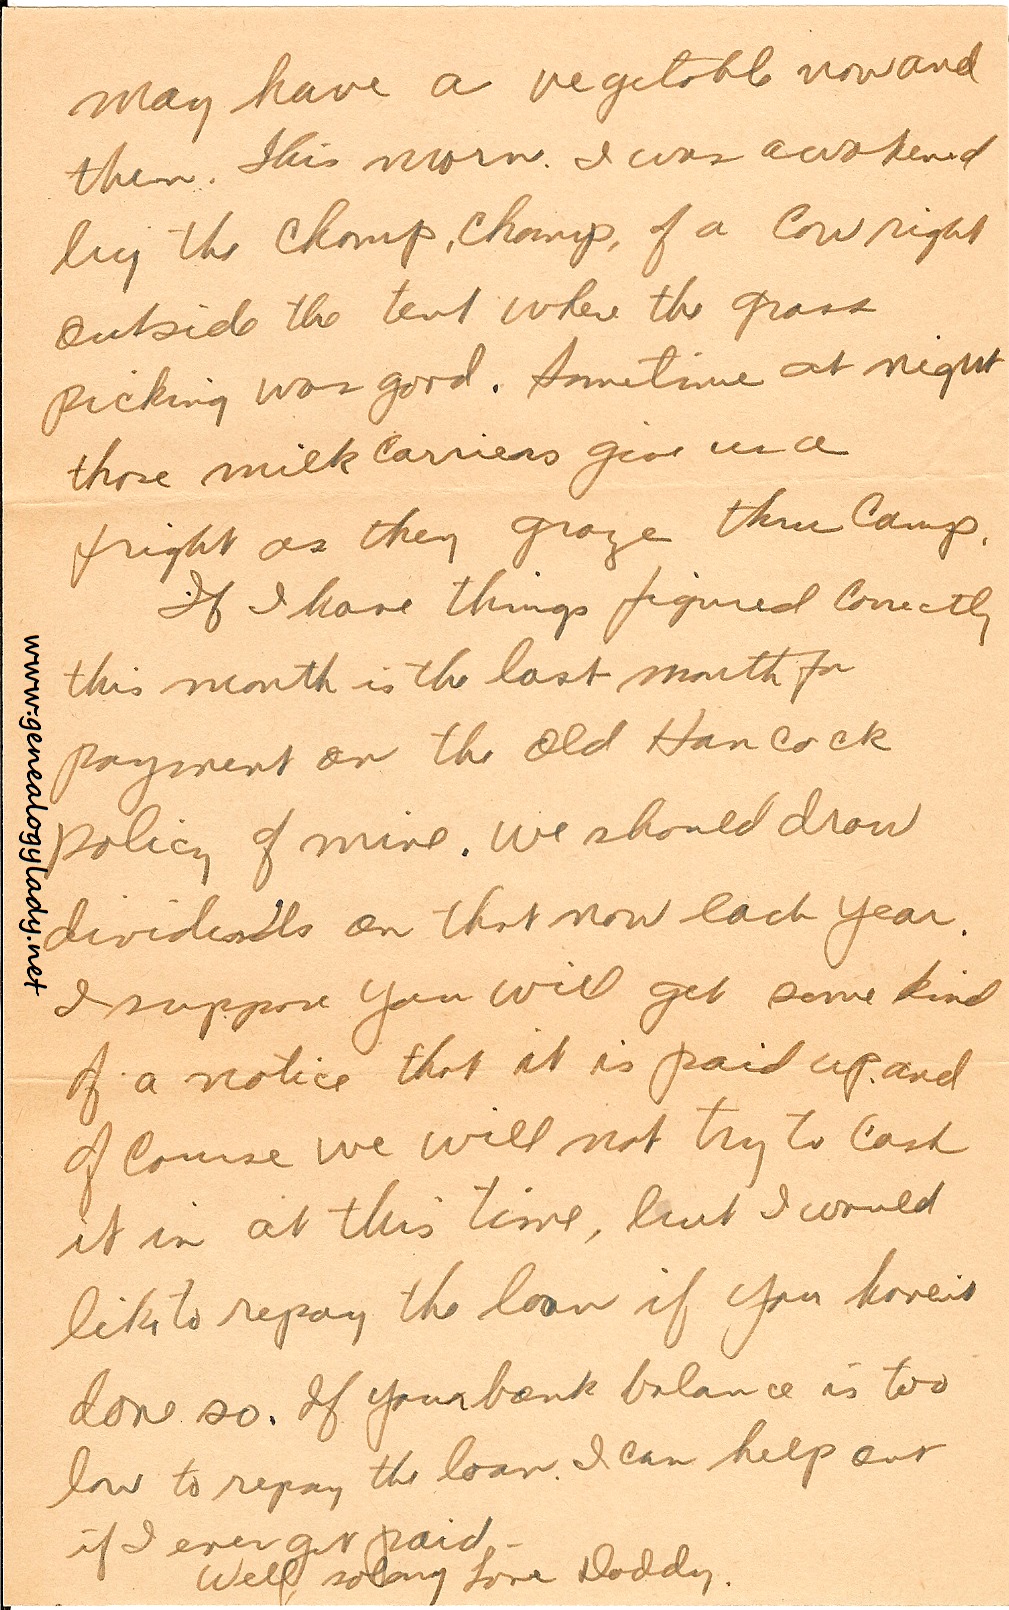 may have a vegetable now and
then. This morn. I was awakened
by the chomp, chomp, of a cow right
outside the tent where the grass
picking was good. Sometime at night
those milk carriers give us a
fright as they graze thru camp.
If I have things figured correctly
this month is the last month for
payment on the old Hancock
policy of mine. We should draw
dividends on that now each year.
I suppose you will get some kind
of a notice that it is paid up. and
of course we will not try to cash
it in at this time, but I would
like to repay the loan if you haven't
done so. If your bank balance is too
low to repay the loan. I can help out
if I ever get paid -
Well, so long Love Daddy.
www.genealogylady.net